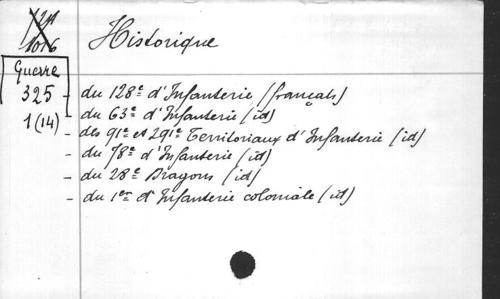 1016
Historique
Guerre
325
1(14)
- du 128e d'Infanterie (français)
- du 63e d'Infanterie (id)
- des 91e et 291e Territoriaux d'Infanterie (id)
- du 78e d'Infanterie (id)
- du 28e Dragons (id)
- du 1er d'Infanterie coloniale (id)